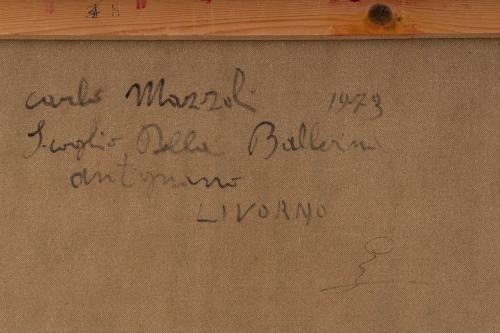 carlo Mazzoli 1973
Scoglio Della Ballerina
antignano
LIVORNO